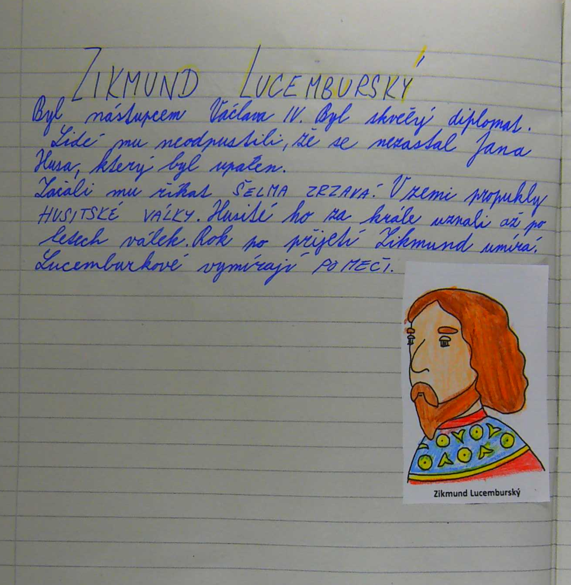 ZIKMUND LUCEMBURSKÝ
Byl nástupcem Václava IV. Byl skvělý diplomat.
Lidé mu neodpustili, že se nezastal Jana
Husa, který byl upálen.
Začali mu říkat ŠELMA ZRZAVÁ! V zemi propukly
HUSITSKÉ VÁLKY. Husité ho za krále uznali až po
letech válek. Rok po přijetí Zikmund umírá.
Lucemburkové vymírají PO MEČI.
Zikmund Lucemburský